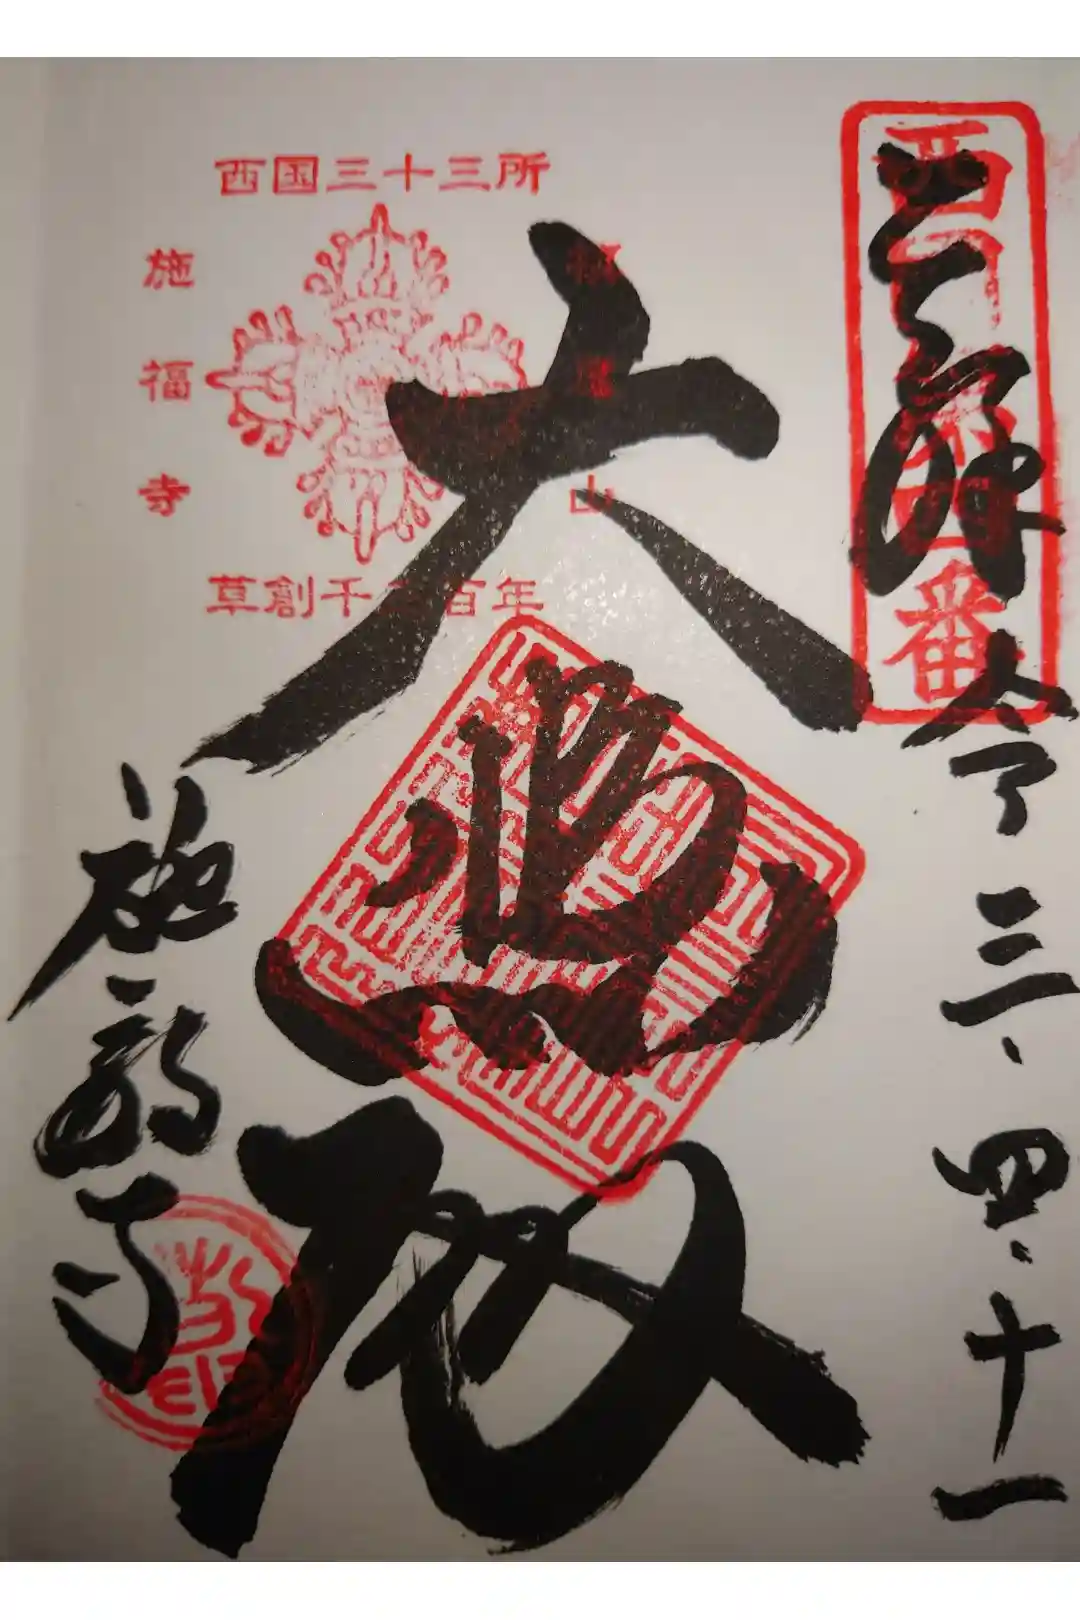 西国第四番
奉拝
令三.四.十一
西国三十三所
山
施福寺
草創千三百年
大悲殿
施福寺